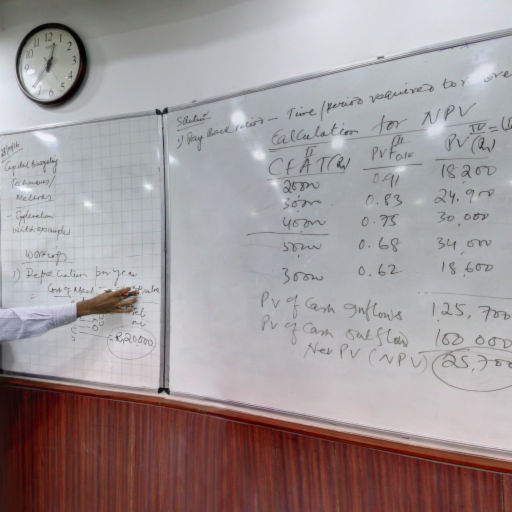 Capital Budgeting
Techniques/
Methods
- Explanation
with examples
Workings
1) Depreciation per year
= Cost of Asset
= Rs 20000
Solution
1) Pay Back Period - Time/period required to
Calculation for NPV
II III IV
CFAT (Rs) PVF PV (Rs)
20000 0.91 18200
30000 0.83 24,900
40000 0.75 30,000
50000 0.68 34,000
30000 0.62 18,600
PV of Cash Inflows 125,700
PV of Cash outflow 100000
Net PV (NPV) 25,700